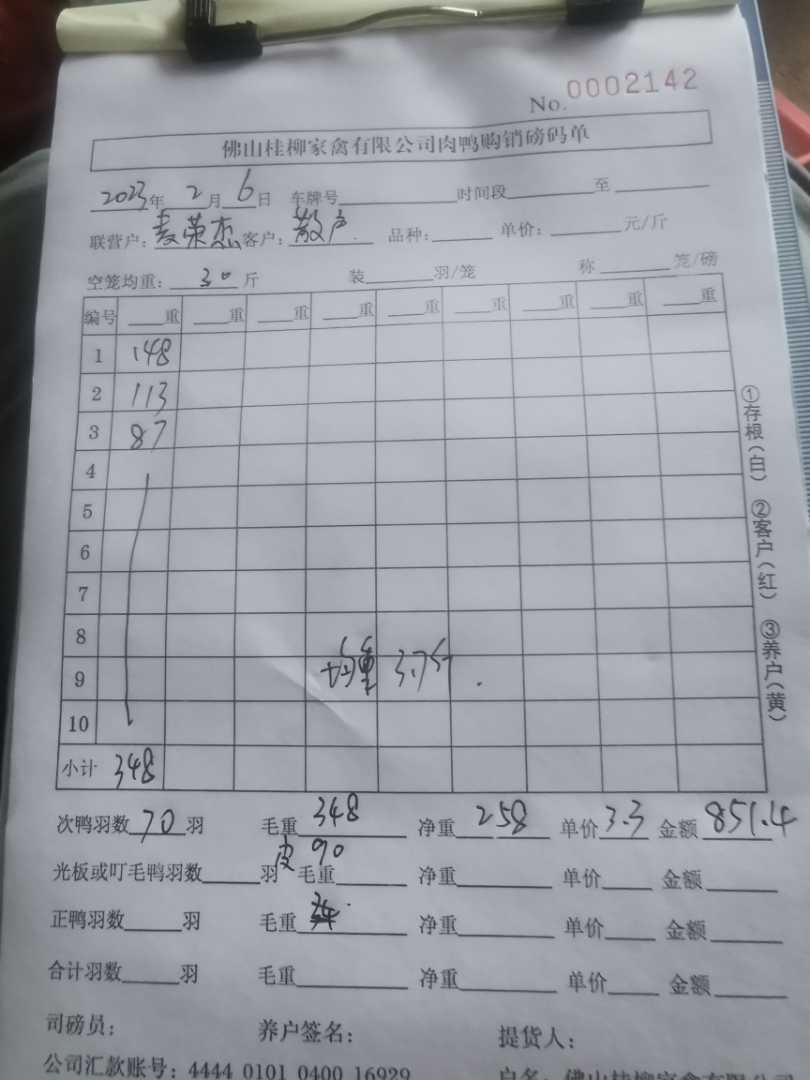 No. 0002142
佛山桂柳家禽有限公司肉鸭购销磅码单
2023年 2月 6日 车牌号 时间段 至
联营户:麦荣杰 客户:散户 品种: 单价: 元/斤
空笼均重: 30 斤 装 羽/笼 称 笼/磅
编号 重 重 重 重 重 重 重 重 重
1 148
2 113
3 87
4
5
6
7
8
9 均重 3.7斤
10
小计 348
次鸭羽数 70 羽 毛重 348 净重 258 单价 3.3 金额 851.4
皮 90
光板或叮毛鸭羽数 羽 毛重 净重 单价 金额
正鸭羽数 羽 毛重 净重 单价 金额
合计羽数 羽 毛重 净重 单价 金额
司磅员: 养户签名: 提货人:
公司汇款账号: 4444 0101 0400 16929 户名: 佛山桂柳家禽有限公司
①存根(白) ②客户(红) ③养户(黄)